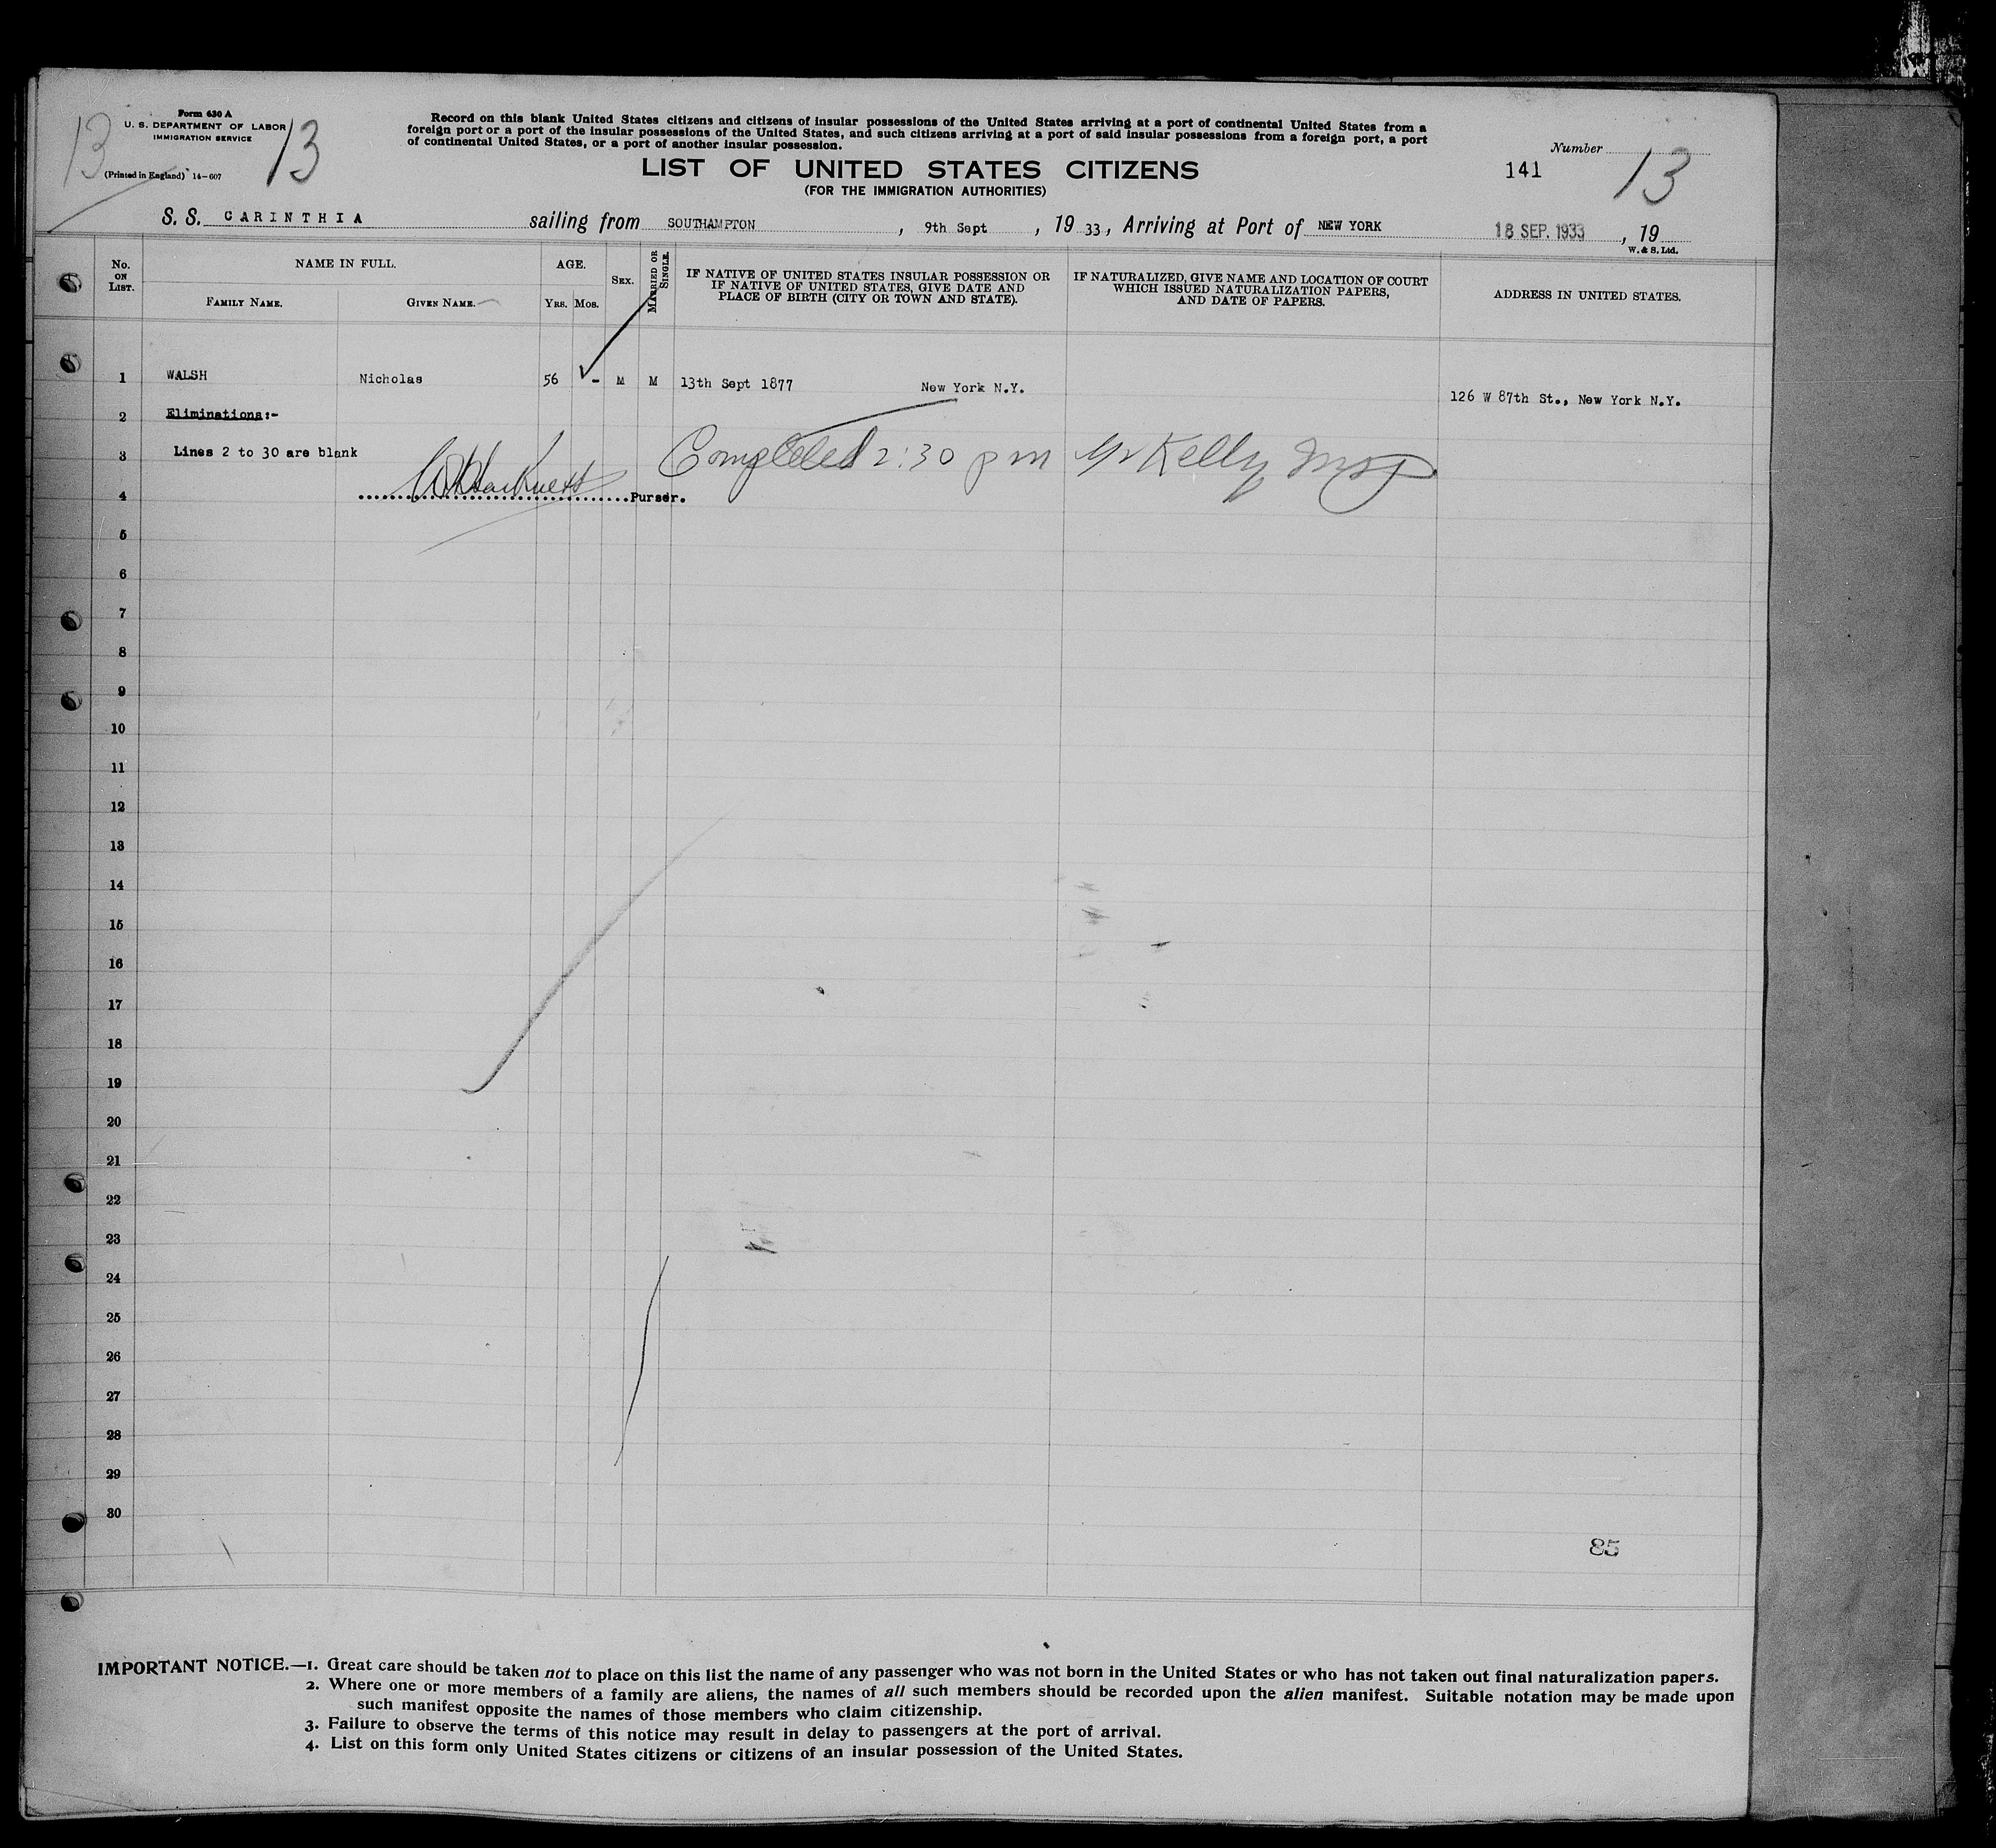 13
Form 630 A
U. S. DEPARTMENT OF LABOR
IMMIGRATION SERVICE
(Printed in England) 14-607
13
Record on this blank United States citizens and citizens of insular possessions of the United States arriving at a port of continental United States from a
foreign port or a port of the insular possessions of the United States, and such citizens arriving at a port of said insular possessions from a foreign port, a port
of continental United States, or a port of another insular possession.
LIST OF UNITED STATES CITIZENS
(FOR THE IMMIGRATION AUTHORITIES)
Number
141
13
S. S. CARINTHIA sailing from SOUTHAMPTON, 9th Sept, 19 33, Arriving at Port of NEW YORK 18 SEP. 1933, 19
W. & S. Ltd.
No. ON LIST.
NAME IN FULL.
FAMILY NAME.
GIVEN NAME.
AGE.
YRS. MOS.
SEX.
MARRIED OR SINGLE.
IF NATIVE OF UNITED STATES INSULAR POSSESSION OR
IF NATIVE OF UNITED STATES, GIVE DATE AND
PLACE OF BIRTH (CITY OR TOWN AND STATE).
IF NATURALIZED, GIVE NAME AND LOCATION OF COURT
WHICH ISSUED NATURALIZATION PAPERS,
AND DATE OF PAPERS.
ADDRESS IN UNITED STATES.
1 WALSH Nicholas 56 - M M 13th Sept 1877 New York N.Y. 126 W 87th St., New York N.Y.
2 Eliminations:-
3 Lines 2 to 30 are blank Completed 2:30 pm Kelly Insp
4 Purser.
5
6
7
8
9
10
11
12
13
14
15
16
17
18
19
20
21
22
23
24
25
26
27
28
29
30
85
IMPORTANT NOTICE.—1. Great care should be taken not to place on this list the name of any passenger who was not born in the United States or who has not taken out final naturalization papers.
2. Where one or more members of a family are aliens, the names of all such members should be recorded upon the alien manifest. Suitable notation may be made upon
such manifest opposite the names of those members who claim citizenship.
3. Failure to observe the terms of this notice may result in delay to passengers at the port of arrival.
4. List on this form only United States citizens or citizens of an insular possession of the United States.